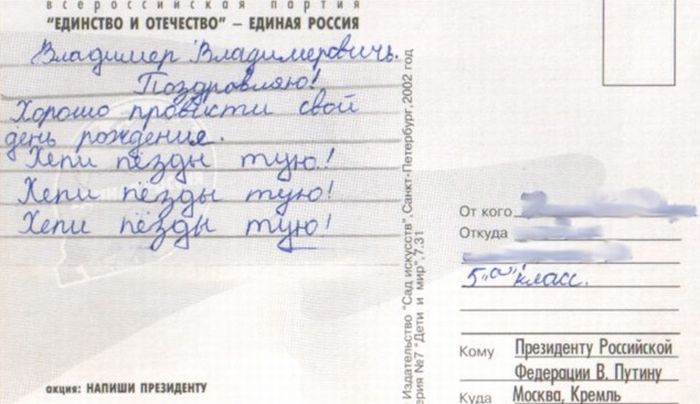 всероссийская партия
"ЕДИНСТВО И ОТЕЧЕСТВО" – ЕДИНАЯ РОССИЯ
Владимер Владимеровичь.
Поздровляю!
Хорошо провисти свой
день рождения.
Хепи пёзды тую!
Хепи пёзды тую!
Хепи пёзды тую!
акция: НАПИШИ ПРЕЗИДЕНТУ
Издательство "Сад искусств", Санкт-Петербург, 2002 год
ерия №7 "Дети и мир", 7.31
От кого
Откуда
5 "а" класс.
Кому Президенту Российской
Федерации В. Путину
Куда Москва, Кремль